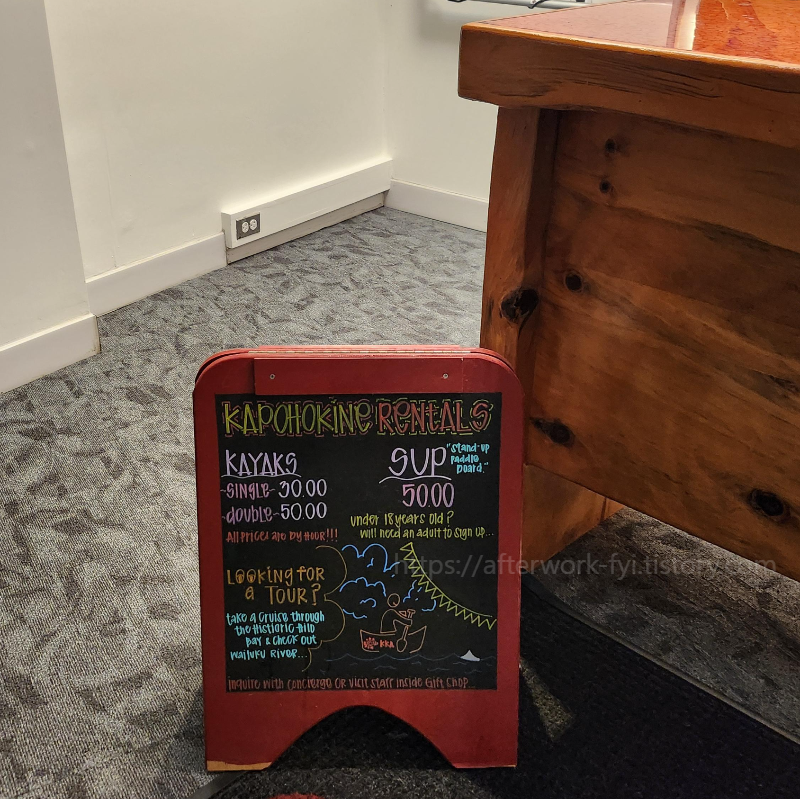 KAPOHOKINE RENTALS
KAYAKS
-single- 30.00
-double- 50.00
All prices are by Hour!!!
SUP
"stand-up
paddle
board."
50.00
under 18 years old?
will need an adult to sign up...
LOOKING for
a TOUR?
take a cruise through
the Historic Hilo
Bay & check out
Wailuku River...
KKA
inquire with concierge OR visit staff inside Gift Shop...
https://afterwork-fyi.tistory.com